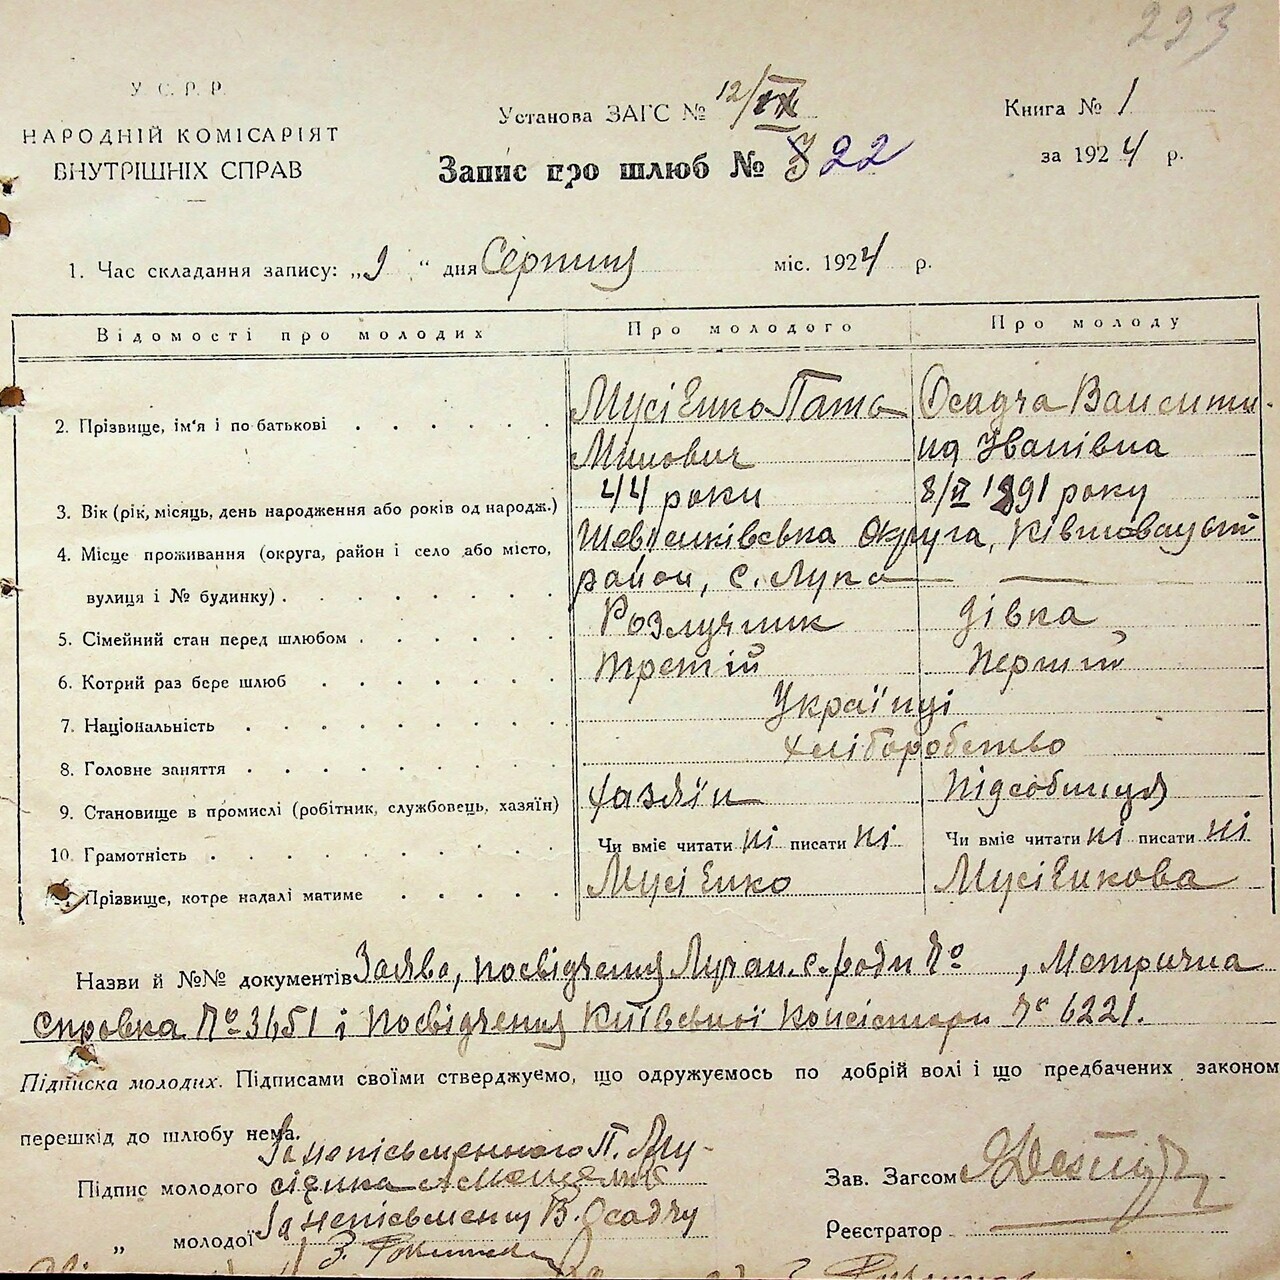 223
У. С. Р. Р.
НАРОДНІЙ КОМІСАРІЯТ
ВНУТРІШНІХ СПРАВ
Установа ЗАГС № 12/IX
Книга № 1
Запис про шлюб № 322
за 1924 р.
1. Час складання запису: „9 “ дня Серпня міс. 1924 р.
Відомості про молодих Про молодого Про молоду
2. Прізвище, ім'я і по батькові Мусієнко Осадча
Минович на Іванівна
3. Вік (рік, місяць, день народження або років од народж.) 44 роки 8/II 1891 року
4. Місце проживання (округа, район і село або місто, Шевченківська Округа,
вулиця і № будинку) район, с. Лука
5. Сімейний стан перед шлюбом Розлучник дівка
6. Котрий раз бере шлюб третій перший
7. Національність Українці
8. Головне заняття хліборобство
9. Становище в промислі (робітник, службовець, хазяїн) хазяїн підсобниця
10. Грамотність Чи вміє читати ні писати ні Чи вміє читати ні писати ні
Прізвище, котре надалі матиме Мусієнко Мусієнкова
Назви й №№ документів Заява, посвідчення Лучан. с.-ради №, Метрична
справка № 3651 і посвідчення Київської консисторі № 6221.
Підписка молодих. Підписами своїми стверджуємо, що одружуємось по добрій волі і що предбачених законом
перешкід до шлюбу нема.
За неписьменного П. Му-
Підпис молодого сієнка
Зав. Загсом
„ молодої За неписьменну В. Осадчу
Реєстратор